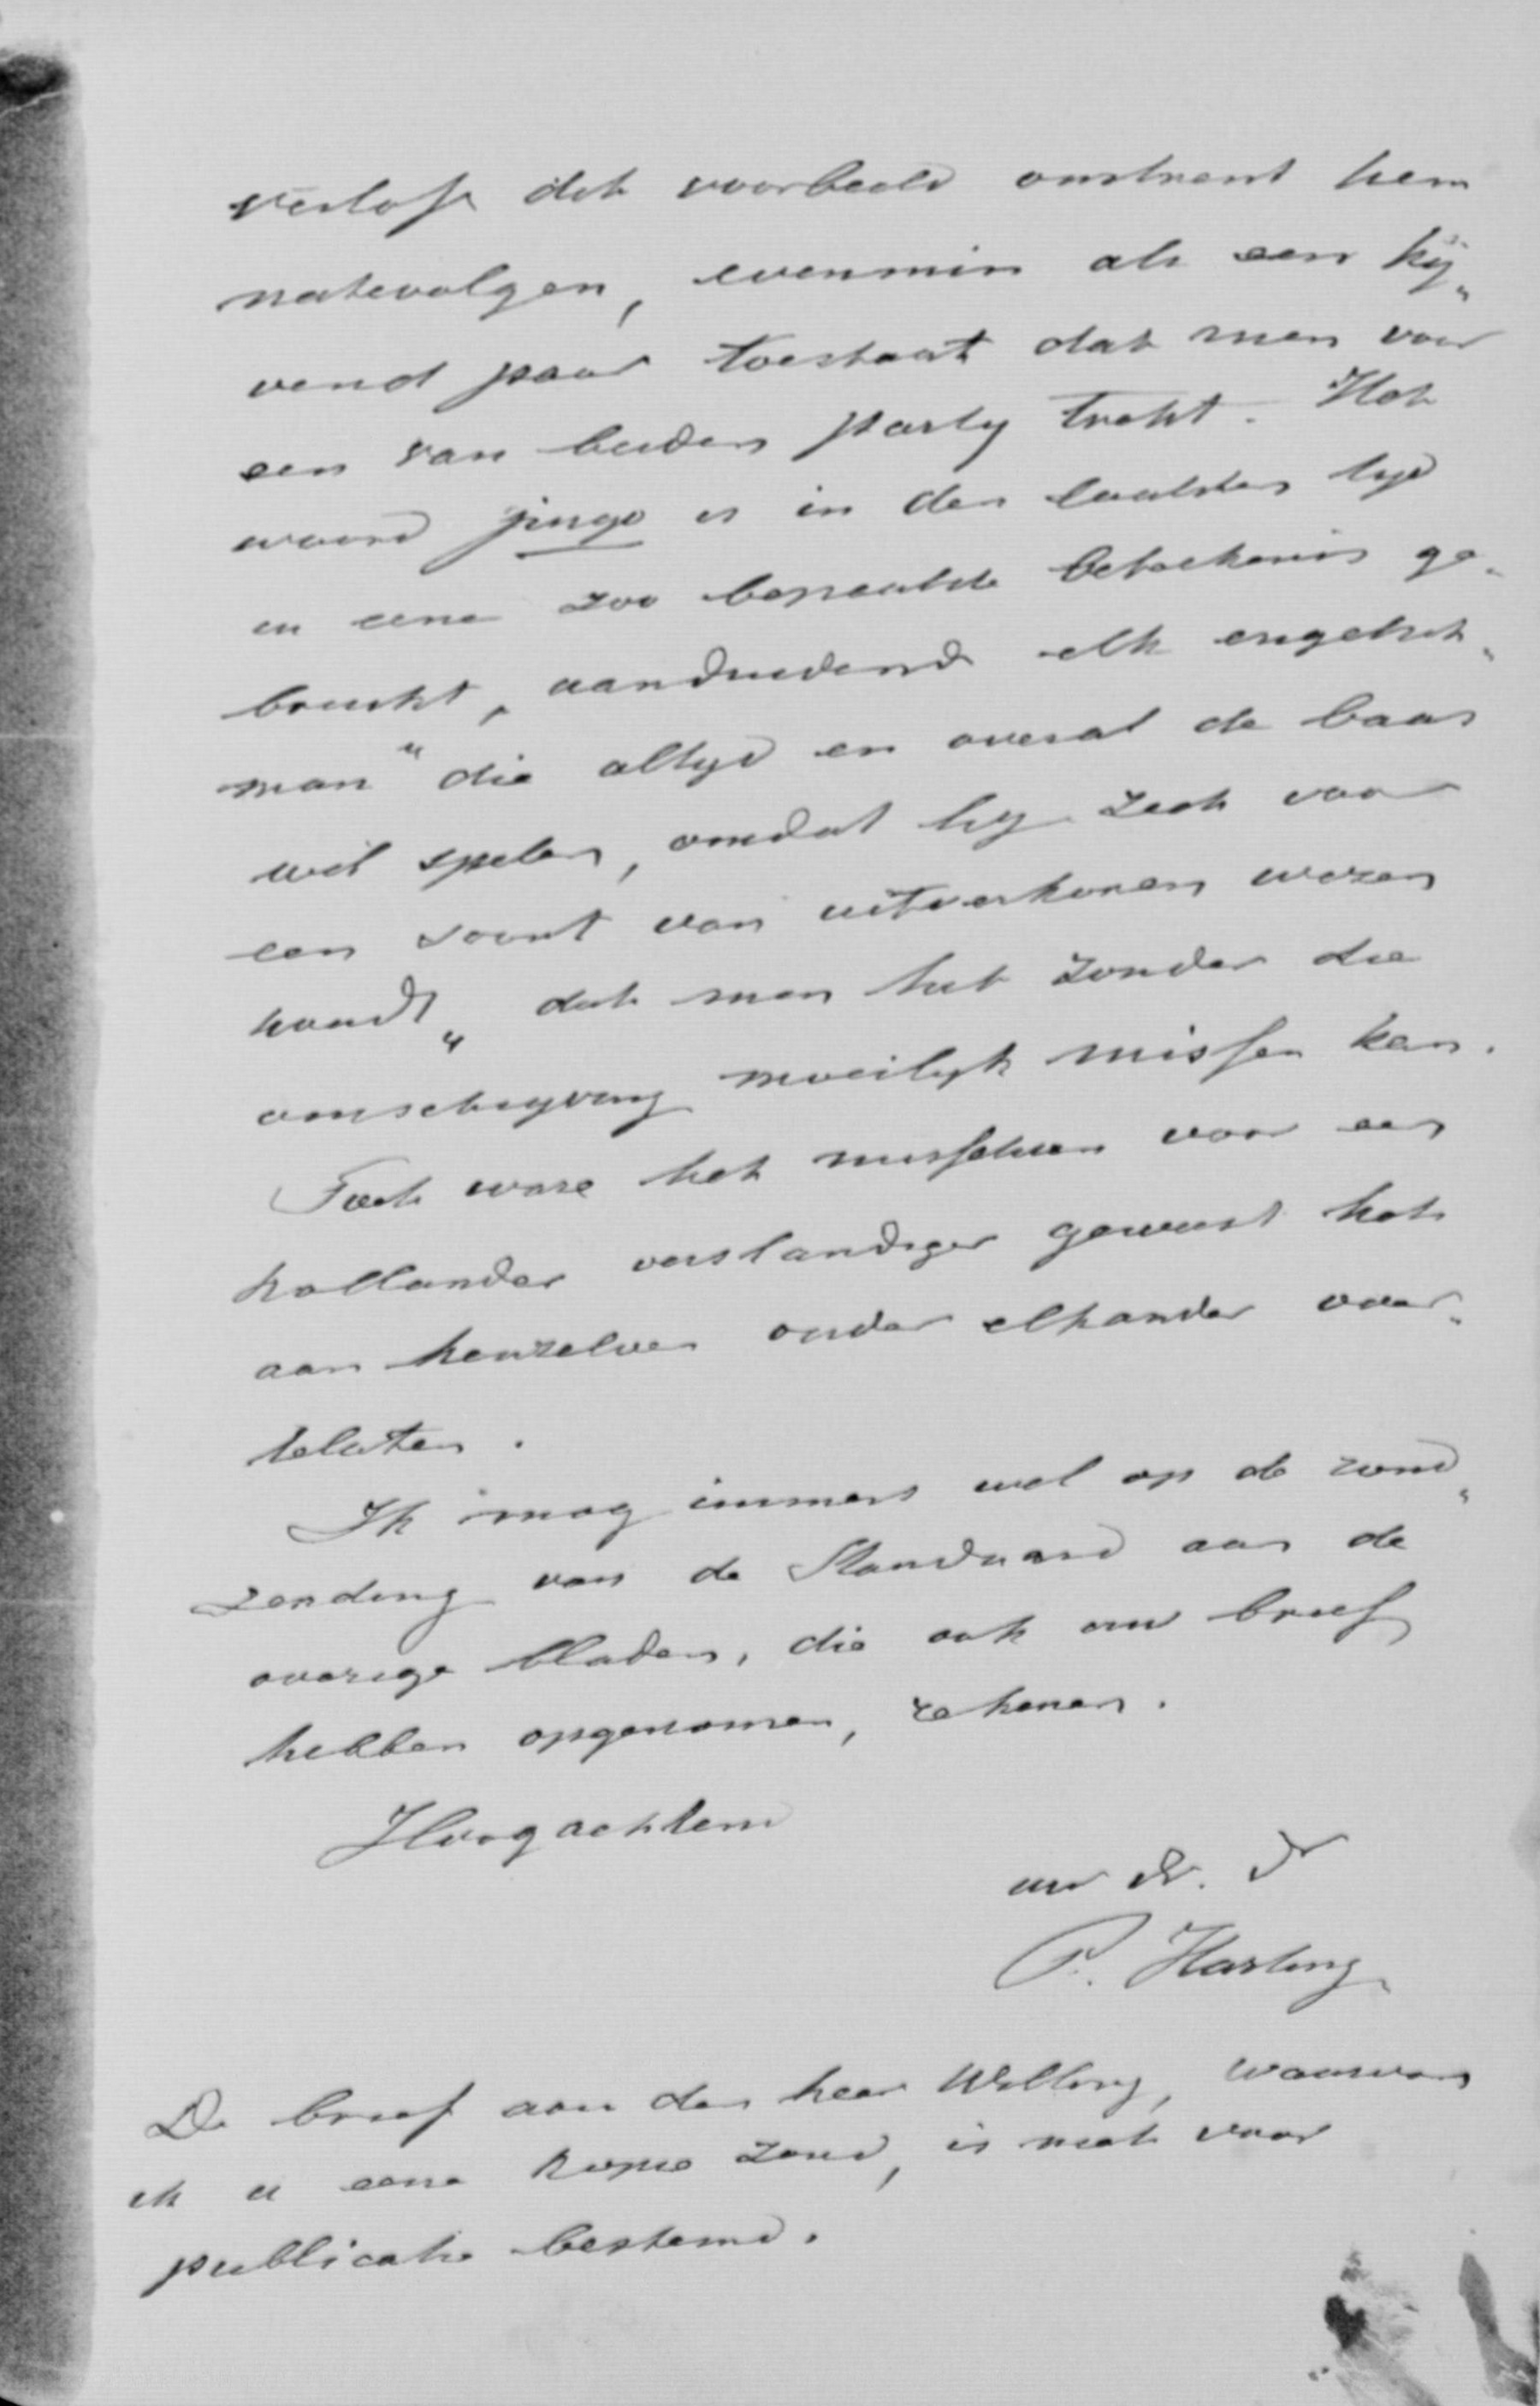 verlof dit voorbeeld omtrent hem
natevolgen, evenmin als een kij„
vend paar toestaat dat men voor
een van beiden party trekt. Het
woord jingo is in den laatsten tyd
in eene zoo bepaalde beteekenis ge„
bruikt, aanduidend elk engelsch„
man" die altyd en overal de baas
wil spelen, omdat hy zich voor
een soort van uitverkoren wezen
houdt„ dat men het zonder die
omschryving moeilyk missen kan.
Toch ware het misschien voor een
hollander verstandiger geweest het
aan henzelven onder elkander over„
telaten.
Ik mog immers wel op de rond„
zending van de Standaard aan de
overige bladen, die ook uw brief
hebben opgenomen, rekenen.
Hoogachtend
uw d. d
P. Harting
De brief aan den heer Willing, waarvan
ik u eene kopie zond, is niet voor
publicatie bestemd.